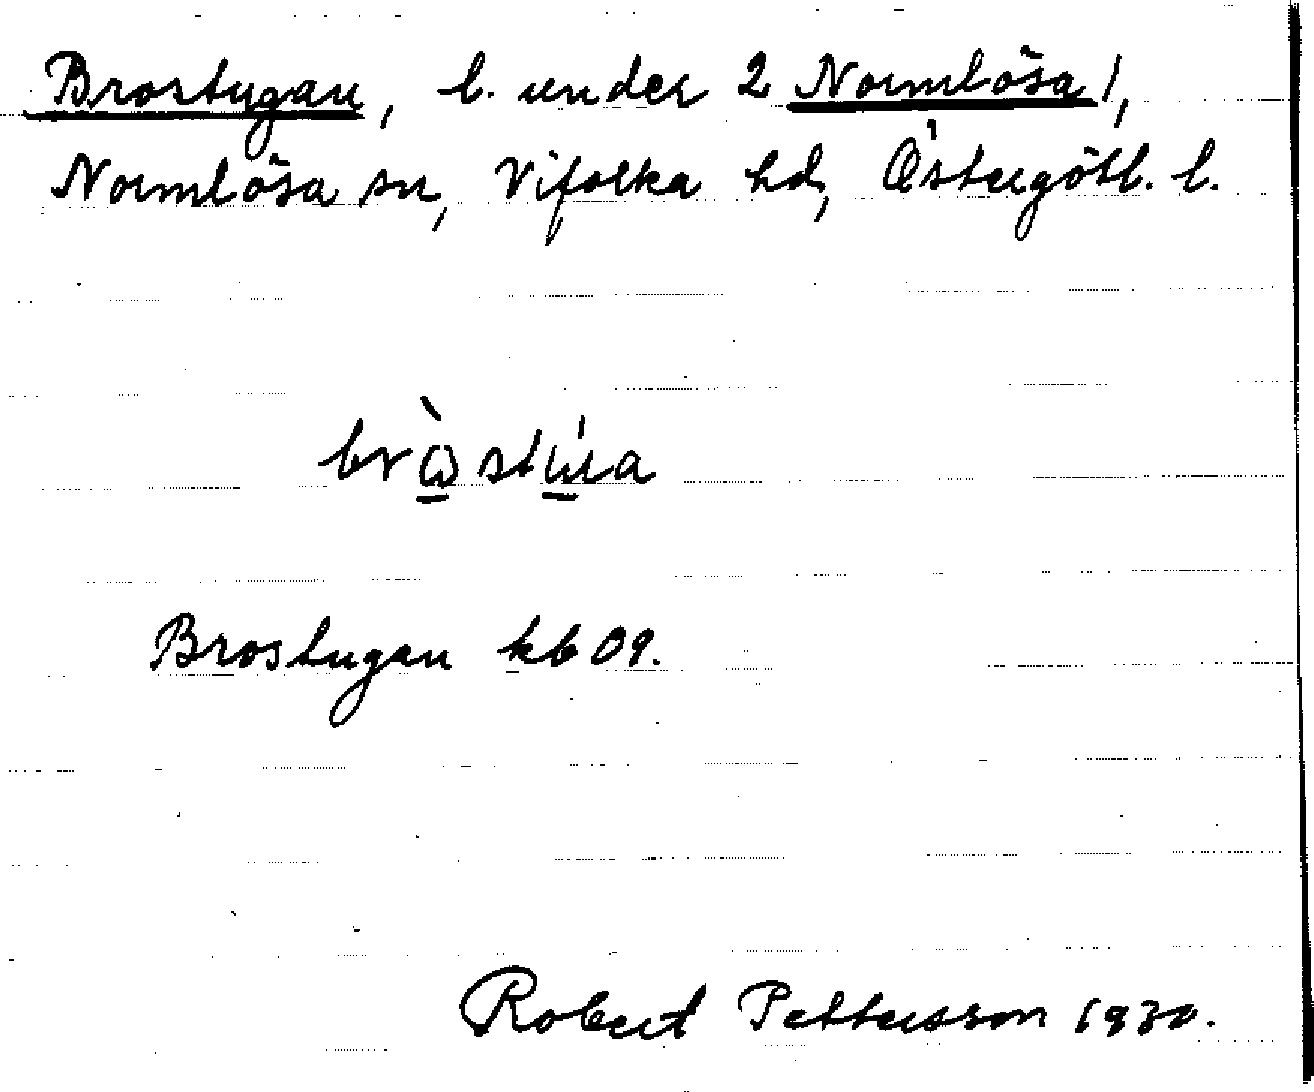 Brostugan, l. under 2 Normlösa 1,
Normlösa sn, Vifolka hd, Östergötl. l.
Brostugan kb 09.
Robert Pettersson 1930.